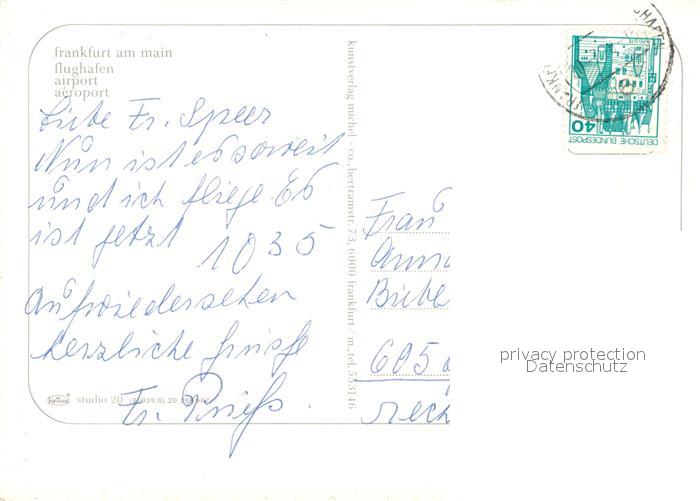 frankfurt am main
flughafen
airport
aéroport
Liebe Fr. Speer
Nun ist es soweit
und ich fliege. Es
ist jetzt 1035
Aufwiedersehen
herzliche Grüsse
Fr.
studio 20
kunstverlag michel + co. bertramstr. 73, 6000 frankfurt / m., tel. 553146
DEUTSCHE BUNDESPOST
40
Frau
Anna
Biebe
605
privacy protection
Datenschutz